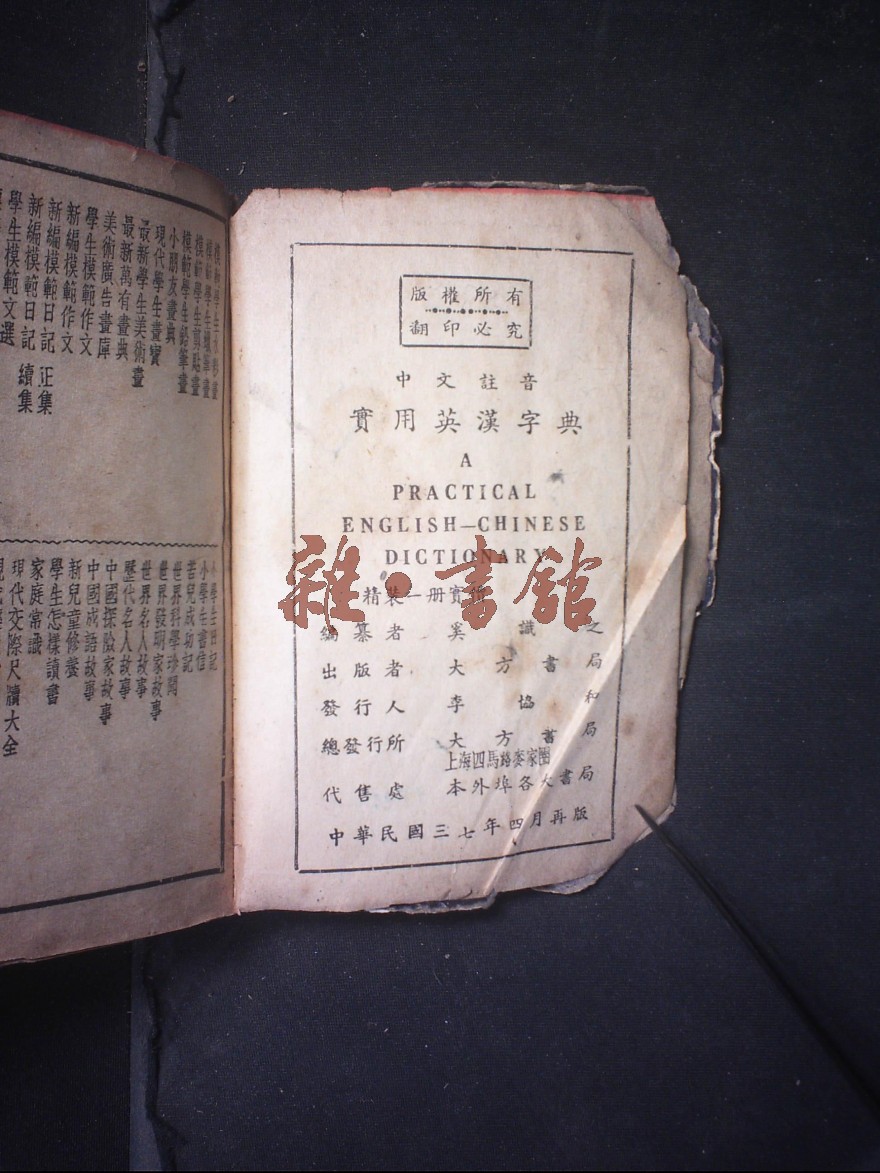 版權所有
翻印必究
中文註音
實用英漢字典
A
PRACTICAL
ENGLISH—CHINESE
DICTIONARY
精裝一册實
雜·書館
編纂者 奚識之
出版者 大方書局
發行人 李協和
總發行所 大方書局
上海四馬路麥家圈
代售處 本外埠各大書局
中華民國三七年四月再版
模範學生鉛筆畫
小朋友畫典
現代學生畫寶
最新學生美術畫
最新萬有畫典
美術廣告畫庫
學生模範作文
新編模範作文
新編模範日記 正集
新編模範日記 續集
學生模範文選
小學生日記
小學生書信
苦兒成功記
世界科學珍聞
世界發明家故事
世界名人故事
歷代名人故事
中國探險家故事
中國成語故事
新兒童修養
學生怎樣讀書
家庭常識
現代交際尺牘大全